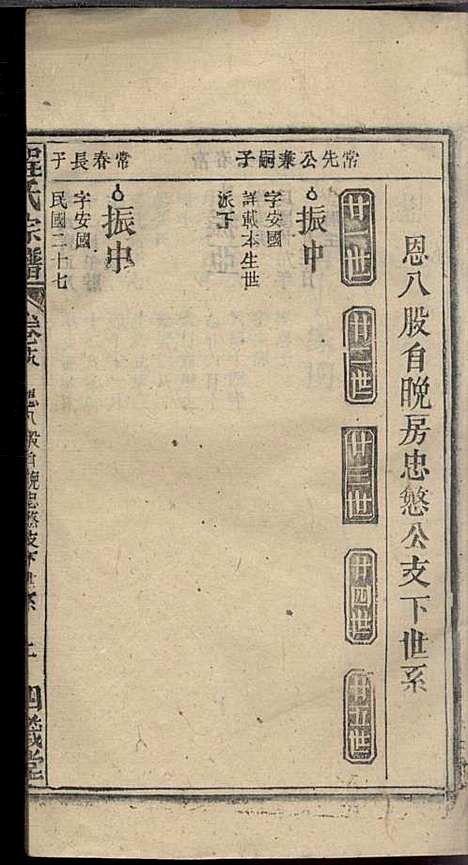 恩八股自晚房忠慜公支下世系
廿一世
廿二世
廿三世
廿四世
廿五世
常先公兼嗣子
振中
字安國
詳載本生世
派下
常春長子
振中
字安國
民國二十七
程氏宗譜
恩八股自晚忠慜支下世系
四箴堂